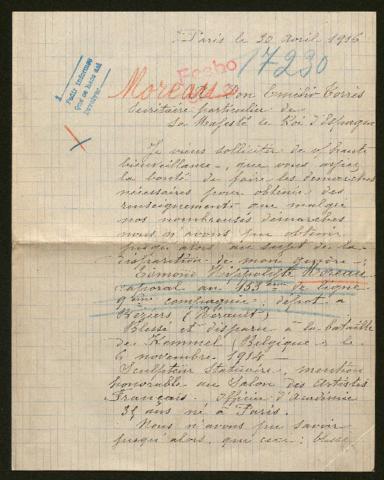 Paris le 20 Avril 1916
1
Pedir informes
Que se haga así
17230
Moreau
Don Emilio Torrès
Secrétaire particulier de
Sa Majesté le Roi d'Espagne
Je viens solliciter de v/ haute
bienveillance, que vous ayez
la bonté de faire les démarches
nécessaires pour obtenir des
renseignements que malgré
nos nombreuses démarches
nous n'avons pu obtenir
jusqu'alors au sujet de la
disparition de mon gendre:
Edmond Hippolyte Moreau
caporal au 153ème de ligne
9ème compagnie; dépôt à
Béziers (Hérault)
Blessé et disparu à la bataille
de Kemmel (Belgique) le
6 novembre 1914 —
Sculpteur Statuaire, mention
honorable au Salon des Artistes
Français, Officier d'Académie
35 ans né à Paris.
Nous n'avons pu savoir
jusqu'alors, que ceci: blessé